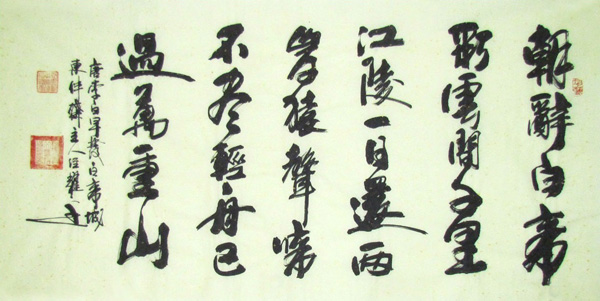 朝辭白帝
彩雲間千里
江陵一日還兩
岸猿聲啼
不尽輕舟已
過萬重山
唐李白早發白帝城
主人